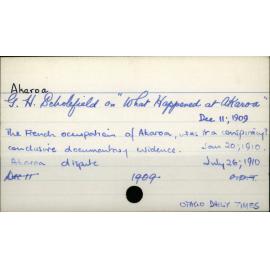 Akaroa
G. H. Scholefield on "What Happened at Akaroa"
Dec 11, 1909
The French occupation of Akaroa, was it a conspiracy?
conclusive documentary evidence. Jan 20, 1910.
Akaroa dispute July 26, 1910
Dec 11 1909 O.D.T.
OTAGO DAILY TIMES